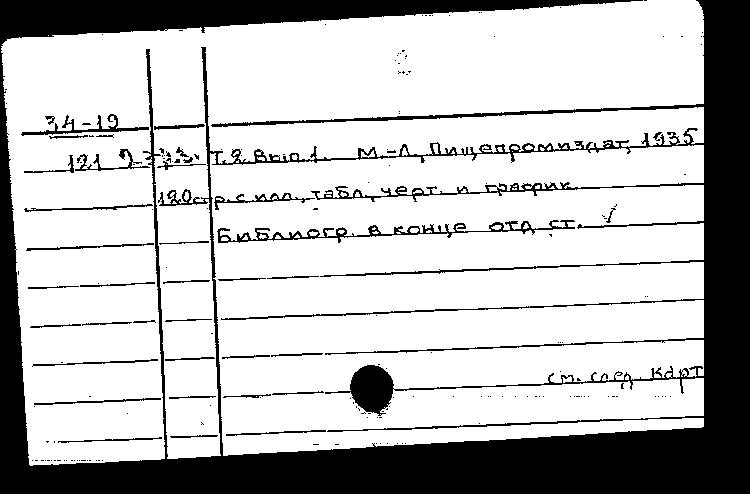 2
34-19
121 Т.2 Вып 1. М.-Л., Пищепромиздат, 1935
120стр. с илл., табл., черт. и график.
Библиогр. в конце отд. ст. ✓
см. след. карт